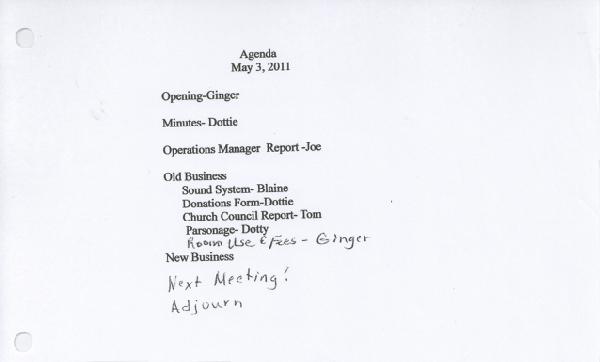 Agenda
May 3, 2011
Opening-Ginger
Minutes- Dottie
Operations Manager Report -Joe
Old Business
Sound System- Blaine
Donations Form-Dottie
Church Council Report- Tom
Parsonage- Dotty
Room Use & Fees - Ginger
New Business
Next Meeting!
Adjourn